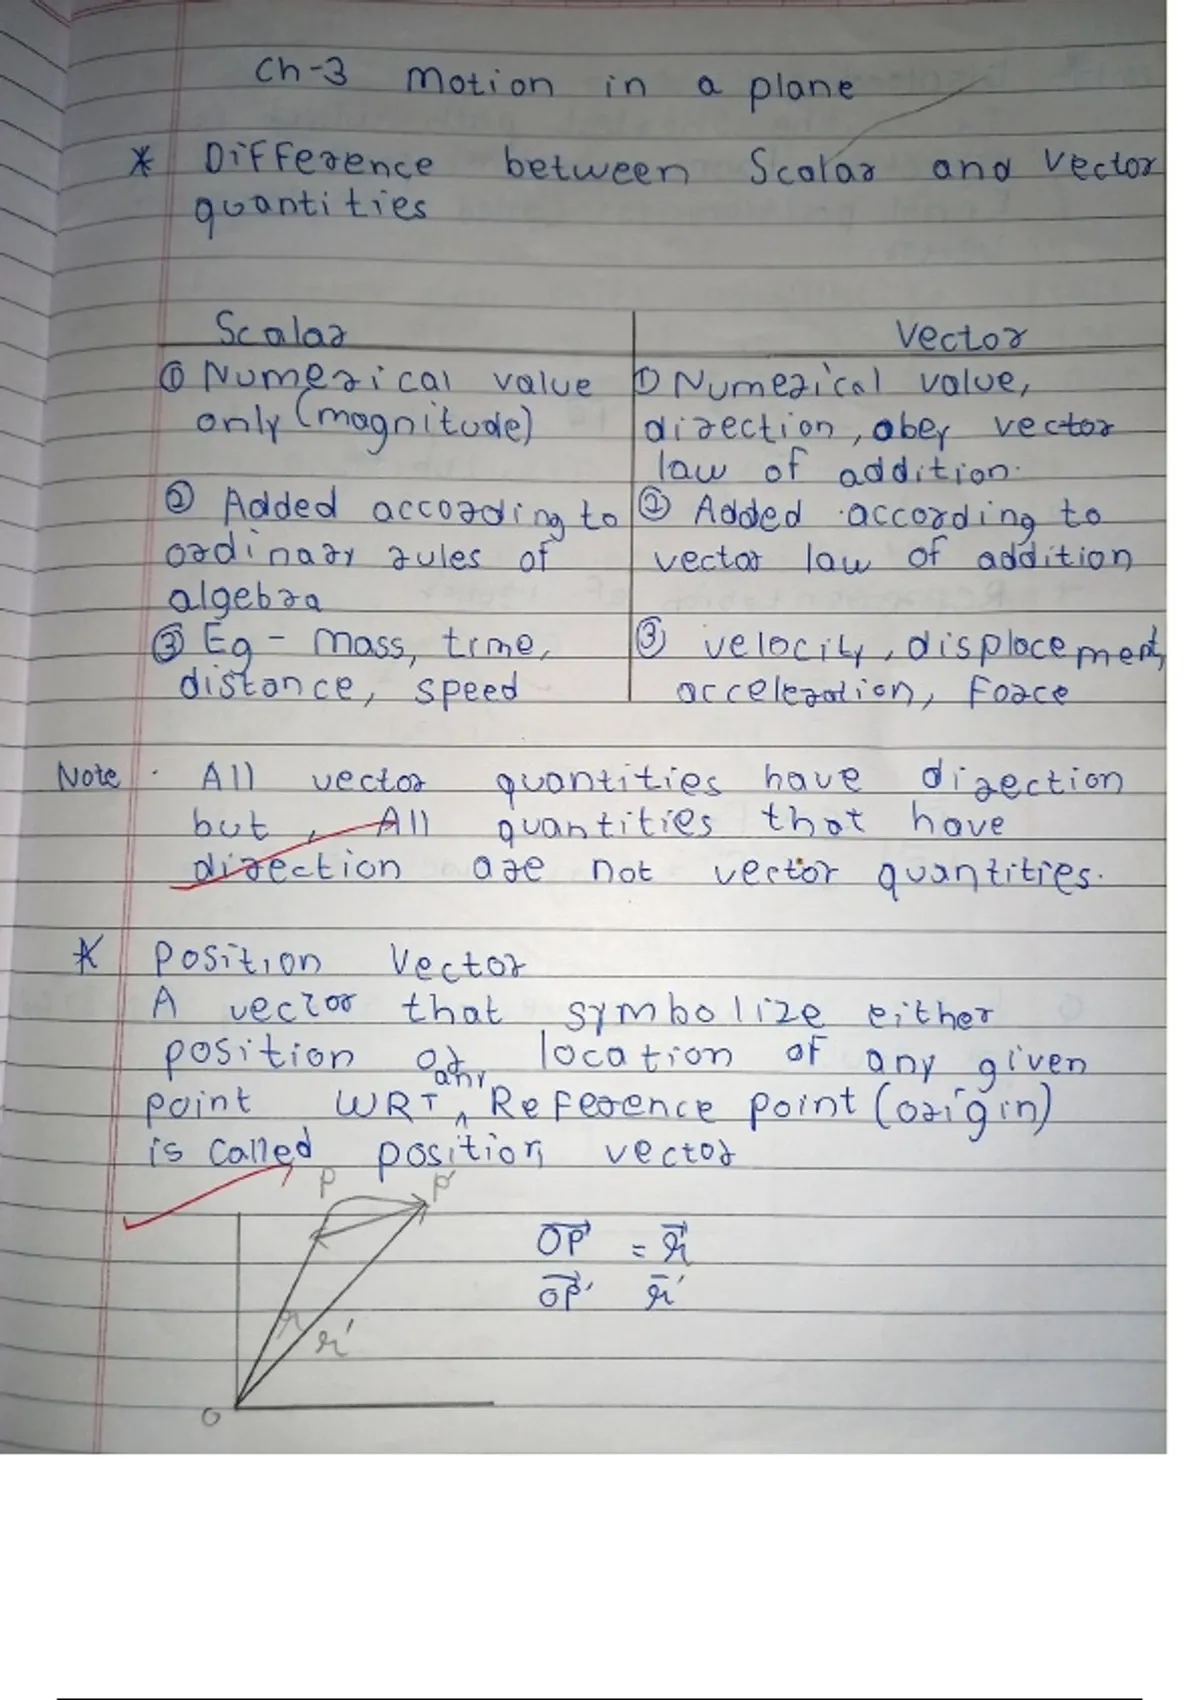 Ch-3 Motion in a plane
* Difference between Scalar and Vector
quantities
Scalar
① Numerical value
only (magnitude)
② Added according to
ordinary rules of
algebra
③ Eg - Mass, time,
distance, speed
Vector
① Numerical value,
direction, obey vector
law of addition.
② Added according to
vector law of addition
③ velocity, displacement,
acceleration, Force
Note . All vector quantities have direction
but, All quantities that have
direction are not vector quantities.
* Position Vector
A vector that symbolize either
position or location of any given
point WRT ^ any Reference point (origin)
is called position vector
P P'
r r'
O
OP⃗ = r⃗
OP⃗' r̄'